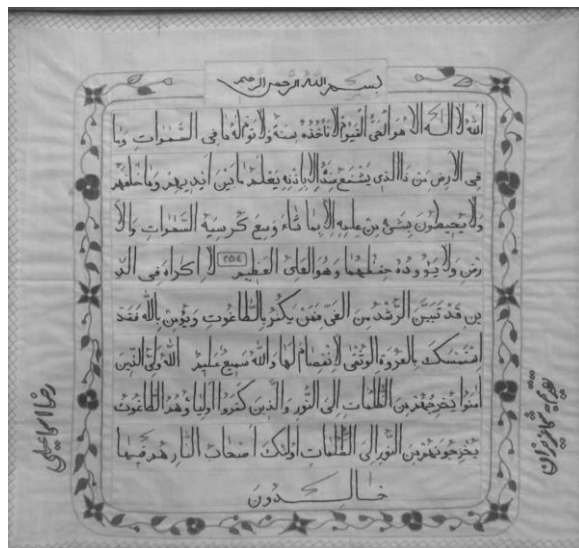 بسم الله الرحمن الرحیم
الله لا اله الا هو الحی القیوم لا تاخذه سنة ولا نوم له ما فی السموات وما
فی الارض من ذا الذی یشفع عنده الا باذنه یعلم ما بین ایدیهم وما خلفهم
ولا یحیطون بشیء من علمه الا بما شاء وسع کرسیه السموات والا
رض ولا یؤوده حفظهما وهو العلی العظیم ۲۵۶ لا اکراه فی الد
ین قد تبین الرشد من الغی فمن یکفر بالطاغوت ویؤمن بالله فقد
استمسک بالعروة الوثقی لا انفصام لها والله سمیع علیم الله ولی الذین
امنوا یخرجهم من الظلمات الی النور والذین کفروا اولیاؤهم الطاغوت
یخرجونهم من النور الی الظلمات اولئک اصحاب النار هم فیها
خالدون
رضا اسماعیلی